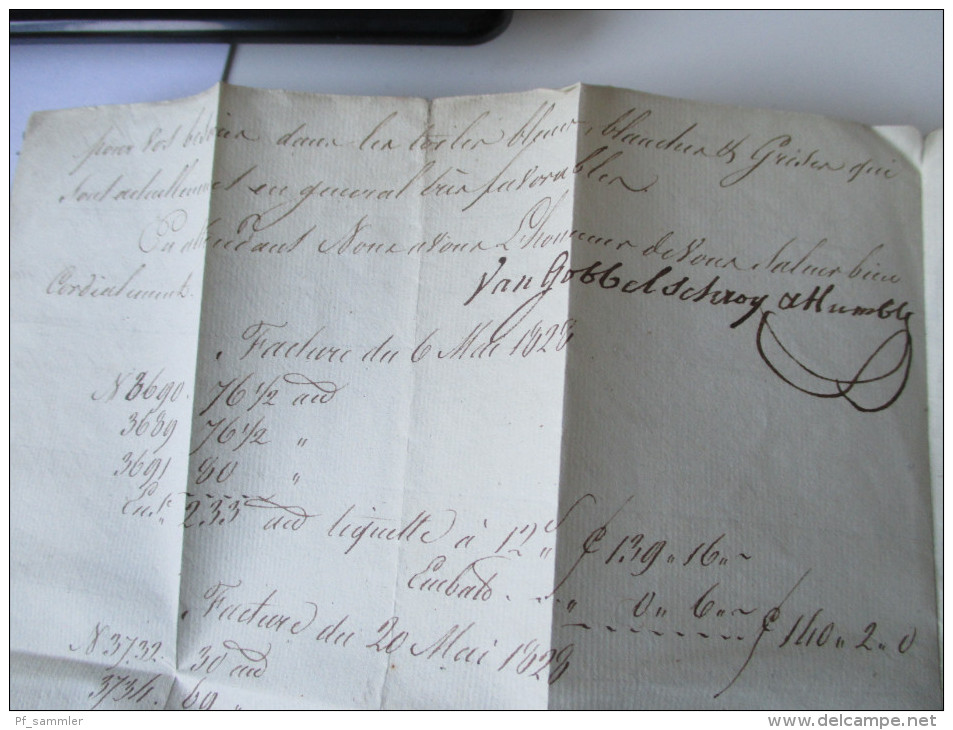 pour vos besoins dans les toiles bleues, blanches & Grises qui
sont actuellement en general très favorables.
En attendant Nous avons L'honneur de vous saluer bien
Cordialement.
Van Gobbelschroy & Humble
Facture du 6 Mai 1828
N 3690. 76 1/2 aud
3689 76 1/2 "
3691 80 "
233 aud à 12 139 " 16 "
Embal. " 0 " 6 " 140 " 2 " 0
Facture du 20 Mai 1828
N. 3732. 30 aud
3734. 69 "
Pf_sammler
www.delcampe.net